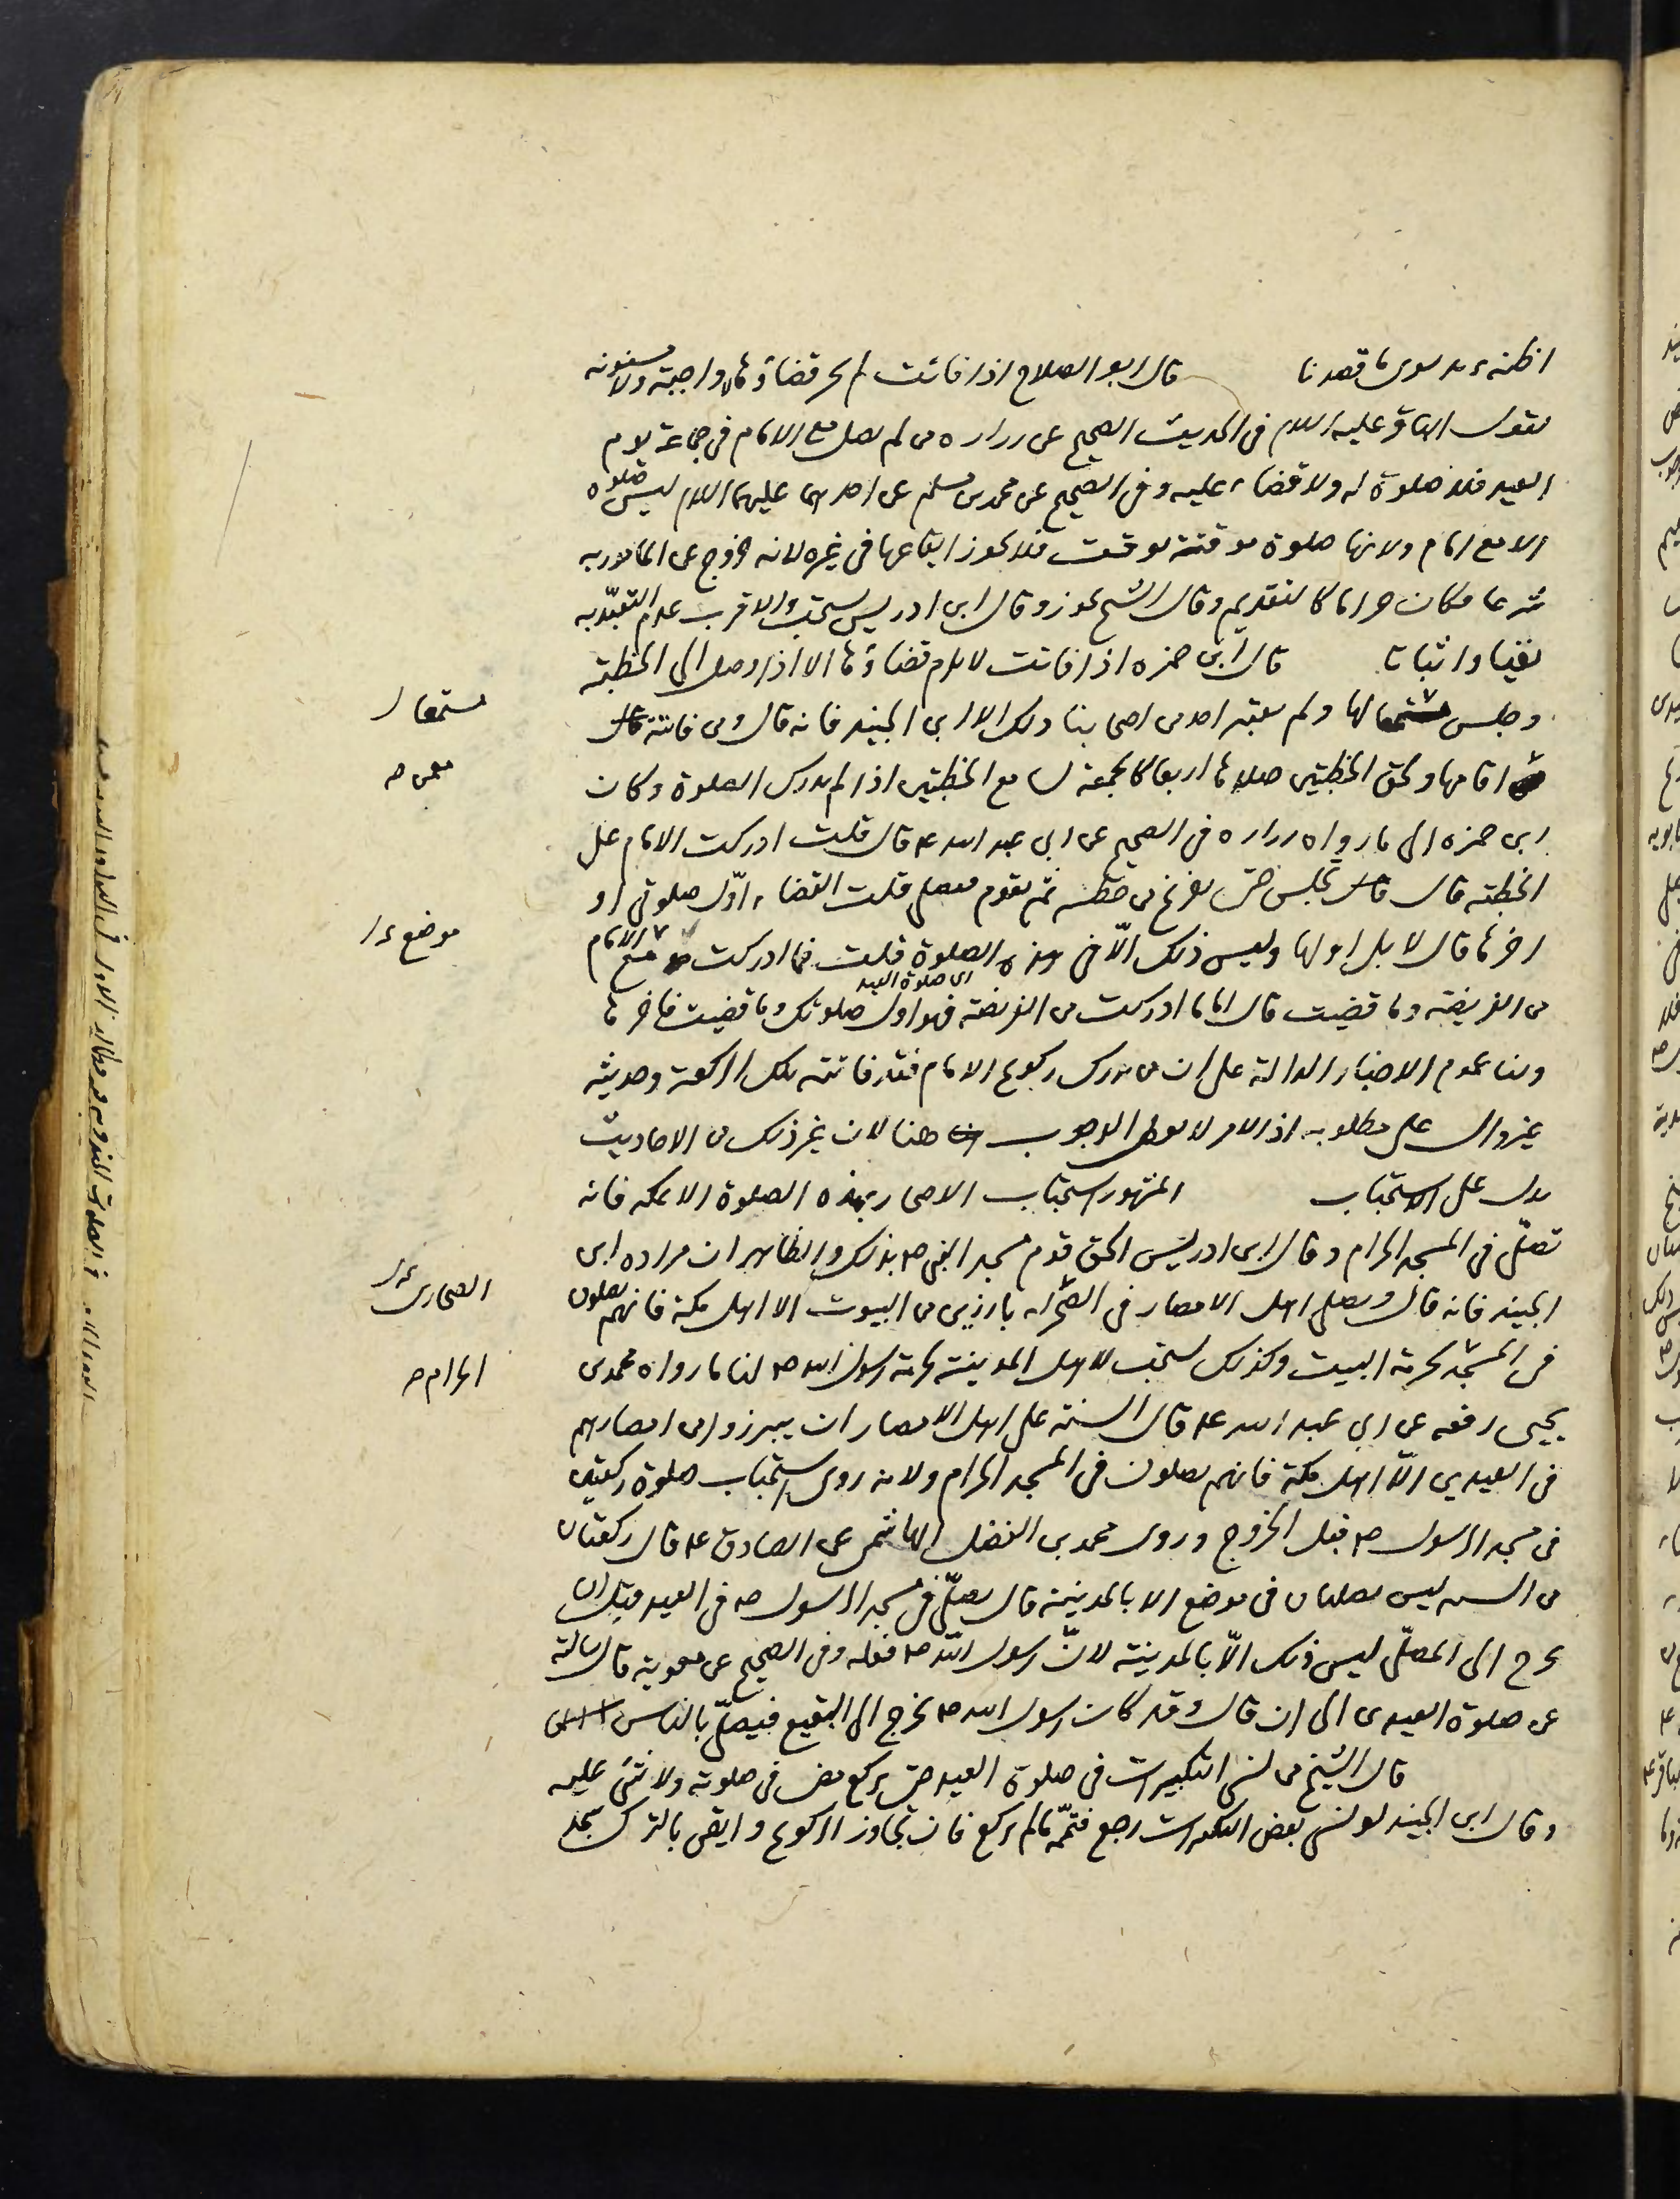 اظنه يريد سوى ما قصدنا قال ابو الصلاح اذا فاتت لم يجز قضاؤها لا واجبة ولا مسنونة
لقول الباقر عليه السلام في الحديث الصحيح عن زراره من لم يصل مع الامام في جماعة يوم
العيد فلا صلوة له ولا قضاء عليه وفي الصحيح عن محمد بن مسلم عن احدهما عليهما السلام ليس صلوة
الا مع امام ولانها صلوة موقتة بوقت فلا يجوز ايقاعها في غيره لانه خروج عن المامور به
شرعا فكان حراما كالتقديم وقال الشيخ يجوز وقال ابن ادريس يستحب والاقرب عدم التعبد به
نفيا واثباتا قال ابن حمزه اذا فاتت لا يلزم قضاؤها الا اذا وصل الى الخطبة
وجلس مستمعا لها ولم يعتبر احد من اصحابنا ذلك الا ابن الجنيد فانه قال ومن فاتته
اقامها ولحق الخطبتين صلاها اربعا كالجمعة لسامع الخطبتين اذا لم يدرك الصلوة وكان
ابن حمزه الى ما رواه زراره في الصحيح عن ابي عبد الله ع قال قلت ادركت الامام على
الخطبة قال قال تجلس حتى يفرغ من خطبته ثم تقوم فتصلى قلت القضاء اول صلوتي او
اخرها قال لا بل اولها وليس ذلك الا في هذه الصلوة قلت فما ادركت مع الامام
اى صلوة العيد
من الفريضة وما قضيت قال اما ما ادركت من الفريضة فهو اول صلوتك وما قضيت فاخرها
ولنا عموم الاخبار الدالة على ان من يدرك ركوع الامام فقد فاتته تلك الركعة وحديثه
غير دال على مطلوبه اذ الامر لا يعطى الوجوب هنا لان غير ذلك من الاحاديث
يدل على الاستحباب المشهور استحباب الاصحار بهذه الصلوة الا بمكه فانه
تصلى في المسجد الحرام وقال ابن ادريس الحق قوم مسجد النبي ص بذلك والظاهر ان مراده ابن
الجنيد فانه قال ويصلى اهل الامصار في الصحراء بارزين من البيوت الا اهل مكة فانهم يصلون
في المسجد لحرمة البيت وكذلك يستحب لاهل المدينة لحرمة رسول الله ص لنا ما رواه محمد بن
يحيى رفعه عن ابي عبد الله ع قال السنة على اهل الامصار ان يبرزوا من امصارهم
في العيدين الا اهل مكة فانهم يصلون في المسجد الحرام ولانه روى استحباب صلوة ركعتين
في مسجد الرسول ص قبل الخروج وروى محمد بن الفضل الهاشمى عن الصادق ع قال ركعتان
من السنه ليس يصليان في موضع الا بالمدينة قال يصلى في مسجد الرسول ص في العيد قبل ان
يخرج الى المصلى ليس ذلك الا بالمدينة لان رسول الله ص فعله وفي الصحيح عن معوية قال سالته
عن صلوة العيدين الى ان قال وقد كان رسول الله ص يخرج الى البقيع فيصلى بالناس
قال الشيخ من نسى التكبيرات في صلوة العيد حتى يركع مضى في صلوته ولا شئ عليه
وقال ابن الجنيد لو نسى بعض التكبيرات رجع فتممه ما لم يركع فان تجاوز الركوع وايقن بالترك سجد
مستمعا
موضع
الصحارى
الحرام